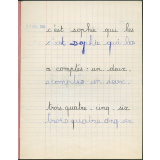 c'est sophie qui les
c'est sophie qui les
a comptés - un. deux.
a comptés un deux.
trois. quatre. cinq. six
trois quatre cinq six